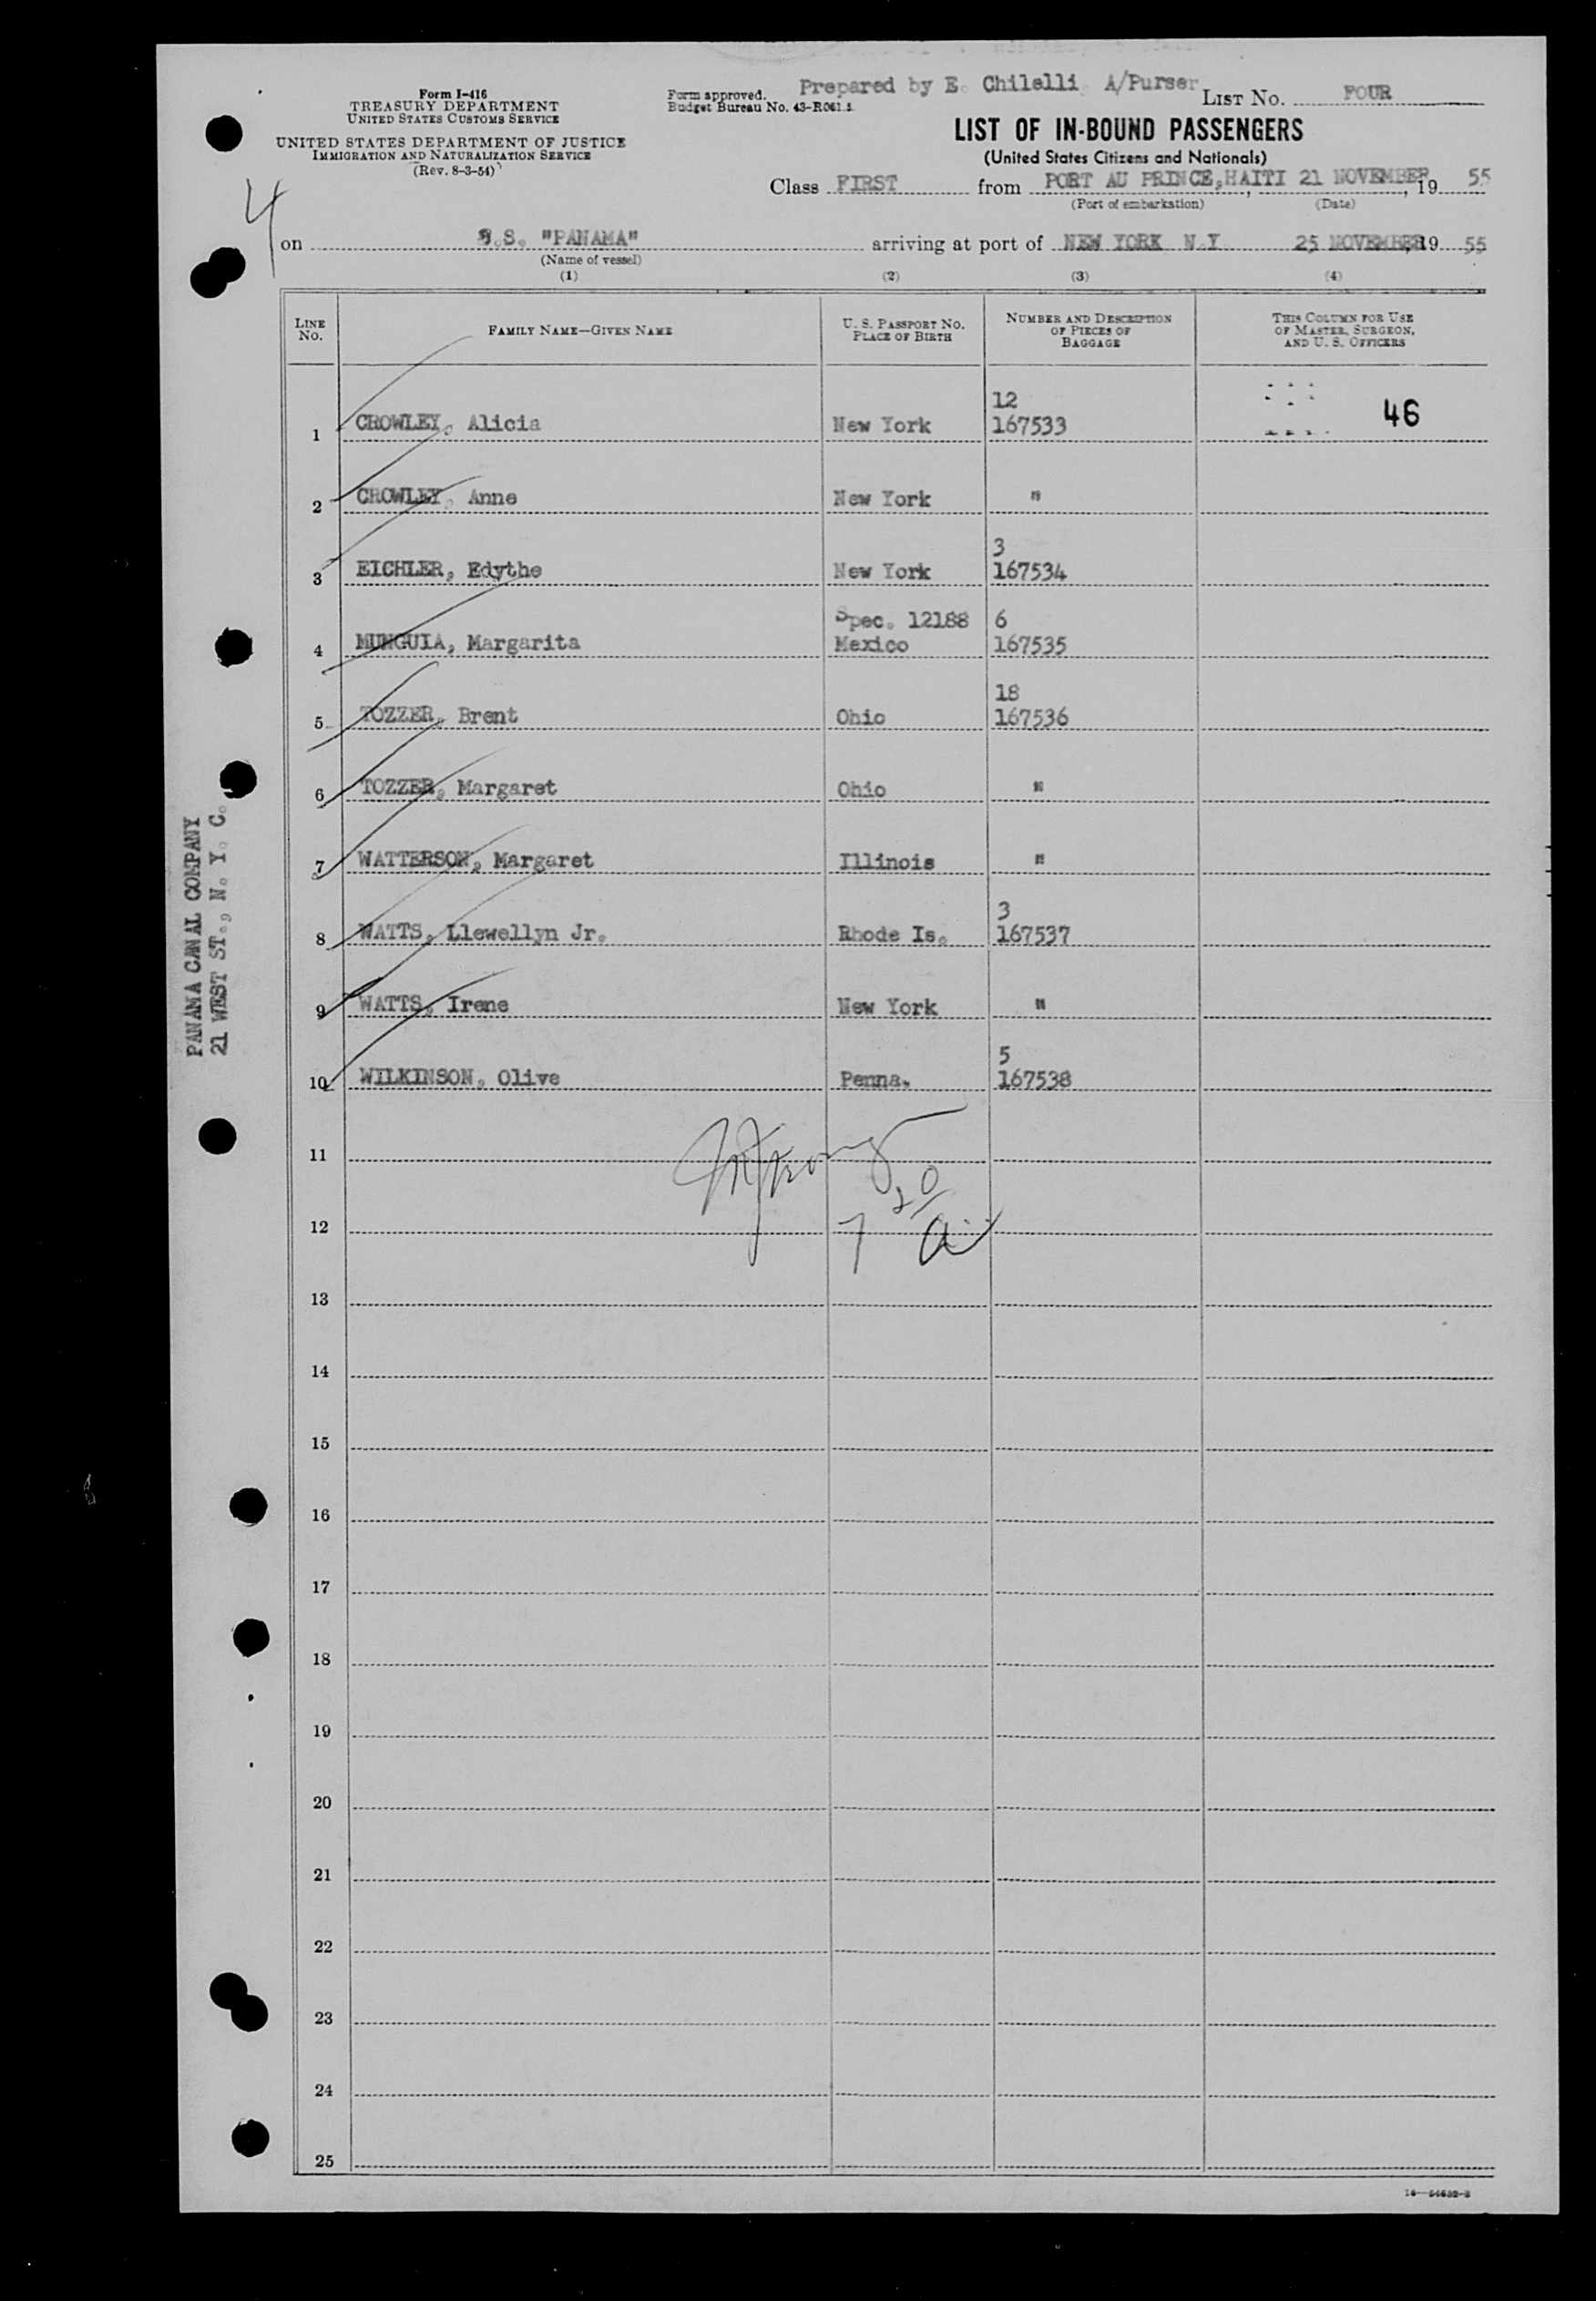 Form I-416
TREASURY DEPARTMENT
UNITED STATES CUSTOMS SERVICE
UNITED STATES DEPARTMENT OF JUSTICE
IMMIGRATION AND NATURALIZATION SERVICE
(Rev. 8-3-54)
Form approved.
Budget Bureau No. 43-R061.5
Prepared by E. Chilelli A/Purser
LIST No. FOUR
LIST OF IN-BOUND PASSENGERS
(United States Citizens and Nationals)
Class FIRST from PORT AU PRINCE, HAITI 21 NOVEMBER, 1955
(Port of embarkation) (Date)
4
on S.S. "PANAMA" arriving at port of NEW YORK N.Y. 25 NOVEMBER 1955
(Name of vessel)
(1) (2) (3) (4)
LINE No. FAMILY NAME—GIVEN NAME U. S. PASSPORT NO. PLACE OF BIRTH NUMBER AND DESCRIPTION OF PIECES OF BAGGAGE THIS COLUMN FOR USE OF MASTER, SURGEON, AND U. S. OFFICERS
12
1 CROWLEY, Alicia New York 167533 46
2 CROWLEY, Anne New York "
3
3 EICHLER, Edythe New York 167534
Spec. 12188 6
4 MUNGUIA, Margarita Mexico 167535
18
5 TOZZER, Brent Ohio 167536
6 TOZZER, Margaret Ohio "
7 WATTERSON, Margaret Illinois "
3
8 WATTS, Llewellyn Jr. Rhode Is. 167537
9 WATTS, Irene New York "
5
10 WILKINSON, Olive Penna. 167538
11
12
13
14
15
16
17
18
19
20
21
22
23
24
25
PANAMA CANAL COMPANY
21 WEST ST., N. Y. C.